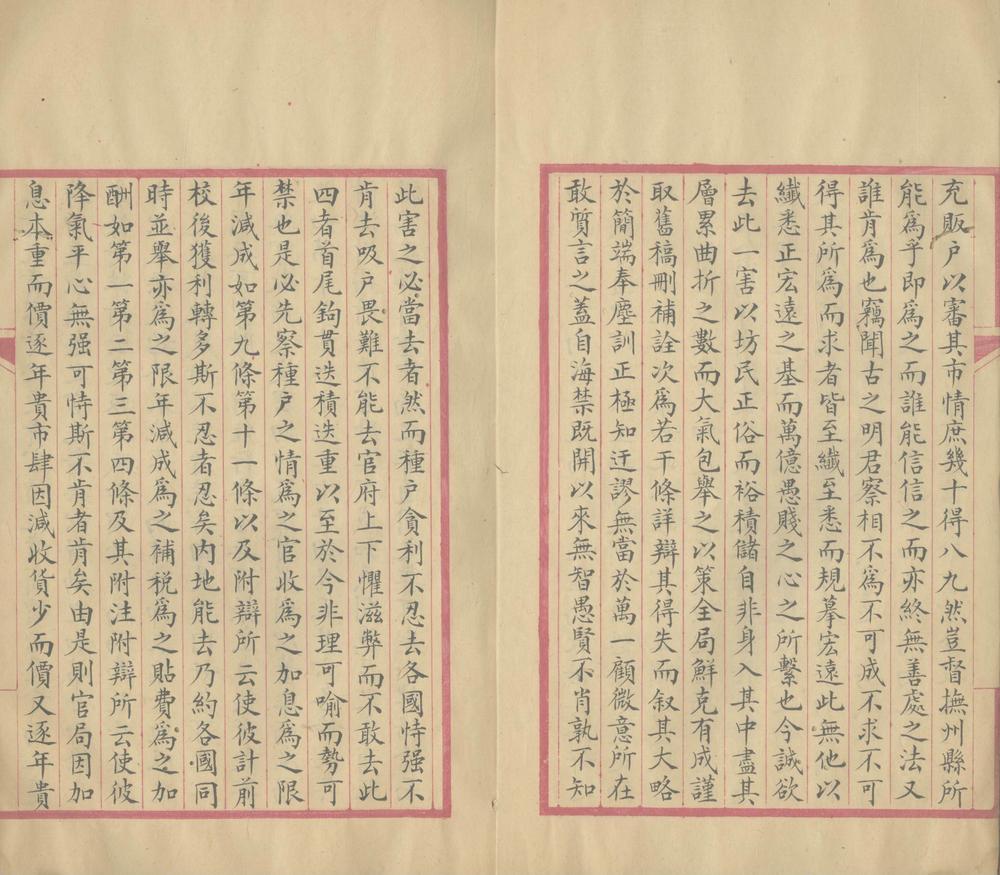 充販戶以審其市情庶幾十得八九然豈督撫州縣所
能爲乎即爲之而誰能信信之而亦終無善處之法又
誰肯爲也竊聞古之明君察相不爲不可成不求不可
得其所爲而求者皆至纖至悉而規摹宏遠此無他以
纖悉正宏遠之基而萬億愚賤之心之所繫也今誠欲
去此一害以坊民正俗而裕積儲自非身入其中盡其
層累曲折之數而大氣包舉之以策全局鮮克有成謹
取舊稿刪補詮次爲若干條詳辯其得失而叙其大略
於簡端奉塵訓正極知迂謬無當於萬一顧微意所在
敢質言之蓋自海禁既開以來無智愚賢不肖孰不知
此害之必當去者然而種戶貪利不忍去各國恃强不
肯去吸戶畏難不能去官府上下懼滋弊而不敢去此
四者首尾鉤貫迭積迭重以至於今非理可喻而勢可
禁也是必先察種戶之情爲之官收爲之加息爲之限
年減成如第九條第十一條以及附辯所云使彼計前
校後獲利轉多斯不忍者忍矣内地能去乃約各國同
時並舉亦爲之限年減成爲之補税爲之貼費爲之加
酬如第一第二第三第四條及其附注附辯所云使彼
降氣平心無强可恃斯不肯者肯矣由是則官局因加
息本重而價逐年貴市肆因減收貨少而價又逐年貴